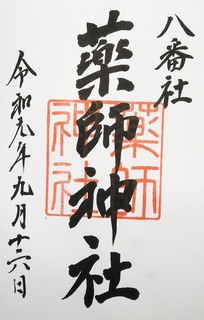 八番社
薬師神社
薬師
神社
令和元年九月十六日